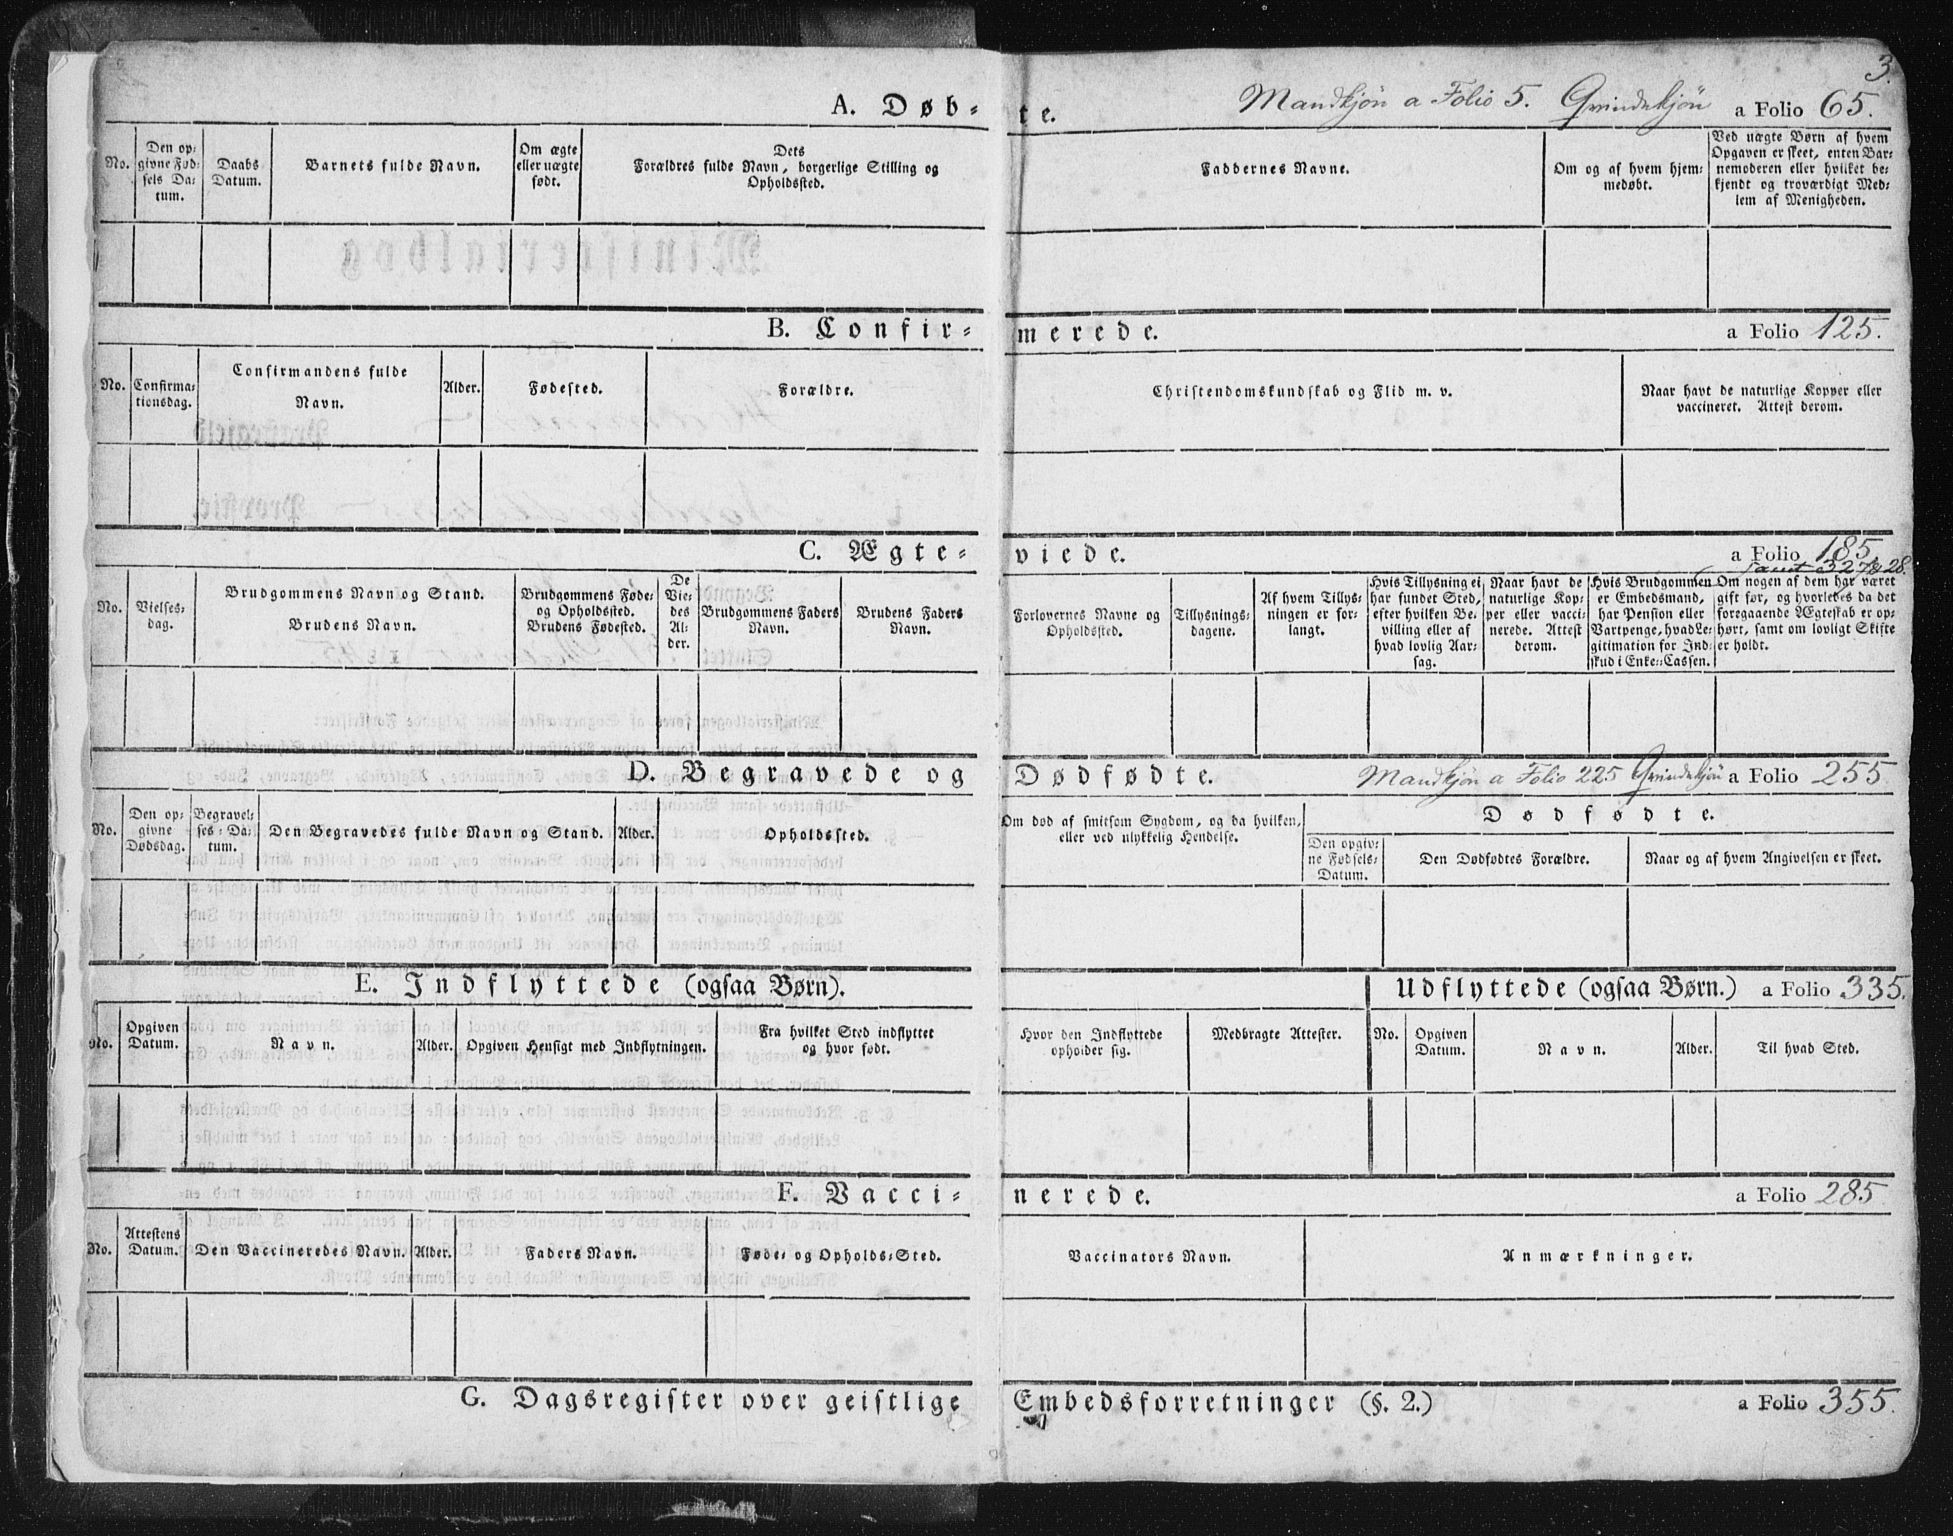 3.
A. Døbte. Mandkjøn a Folio 5. Qvindekjøn a Folio 65.
No.
Den opgivne Fødsels Datum.
Daabs Datum.
Barnets fulde Navn.
Om ægte eller uægte født.
Dets Forældres fulde Navn, borgerlige Stilling og Opholdssted.
Faddernes Navne.
Om og af hvem hjemmedøbt.
Ved uægte Børn af hvem Opgaven er skeet, enten Barnemoderen eller hvilket bekjendt og troværdigt Medlem af Menigheden.
B. Confirmerede. a Folio 125.
No.
Confirmationsdag.
Confirmandens fulde Navn.
Alder.
Fødested.
Forældre.
Christendomskundskab og Flid m. v.
Naar havt de naturlige Kopper eller vaccineret. Attest derom.
C. Ægteviede. a Folio 185
samt 327 & 28.
No.
Vielsesdag.
Brudgommens Navn og Stand.
Brudens Navn.
Brudgommens Føde- og Opholdssted. Brudens Fødested.
De Viedes Alder.
Brudgommens Faders Navn.
Brudens Faders Navn.
Forlovernes Navne og Opholdssted.
Tillysningsdagene.
Af hvem Tillysningen er forlangt.
Hvis Tillysning ei har fundet Sted, efter hvilken Bevilling eller af hvad lovlig Aarsag.
Naar havt de naturlige Kopper eller vaccinerede. Attest derom.
Hvis Brudgommen er Embedsmand, har Pension eller Vartpenge, hvad Legitimation for Indskud i Enke-Cassen.
Om nogen af dem har været gift før, og hvorledes da det foregaaende Ægteskab er ophørt, samt om lovligt Skifte er holdt.
D. Begravede og Dødfødte. Mandkjøn a Folio 225 Qvindekjøn a Folio 255
No.
Den opgivne Dødsdag.
Begravelses-Datum.
Den Begravedes fulde Navn og Stand.
Alder.
Opholdssted.
Om død af smitsom Sygdom, og da hvilken, eller ved ulykkelig Hendelse.
Dødfødte.
Den opgivne Fødsels-Datum.
Den Dødfødtes Forældre.
Naar og af hvem Angivelsen er skeet.
E. Indflyttede (ogsaa Børn). Udflyttede (ogsaa Børn.) a Folio 335.
No.
Opgiven Datum.
Navn.
Alder.
Opgiven Hensigt med Indflytningen.
Fra hvilket Sted indflyttet og hvor født.
Hvor den Indflyttede opholder sig.
Medbragte Attester.
No.
Opgiven Datum.
Navn.
Alder.
Til hvad Sted.
F. Vaccinerede. a Folio 285
No.
Attestens Datum.
Den Vaccineredes Navn.
Alder.
Faders Navn.
Føde- og Opholds-Sted.
Vaccinators Navn.
Anmærkninger.
G. Dagsregister over geistlige Embedsforretninger (§. 2.) a Folio 355.